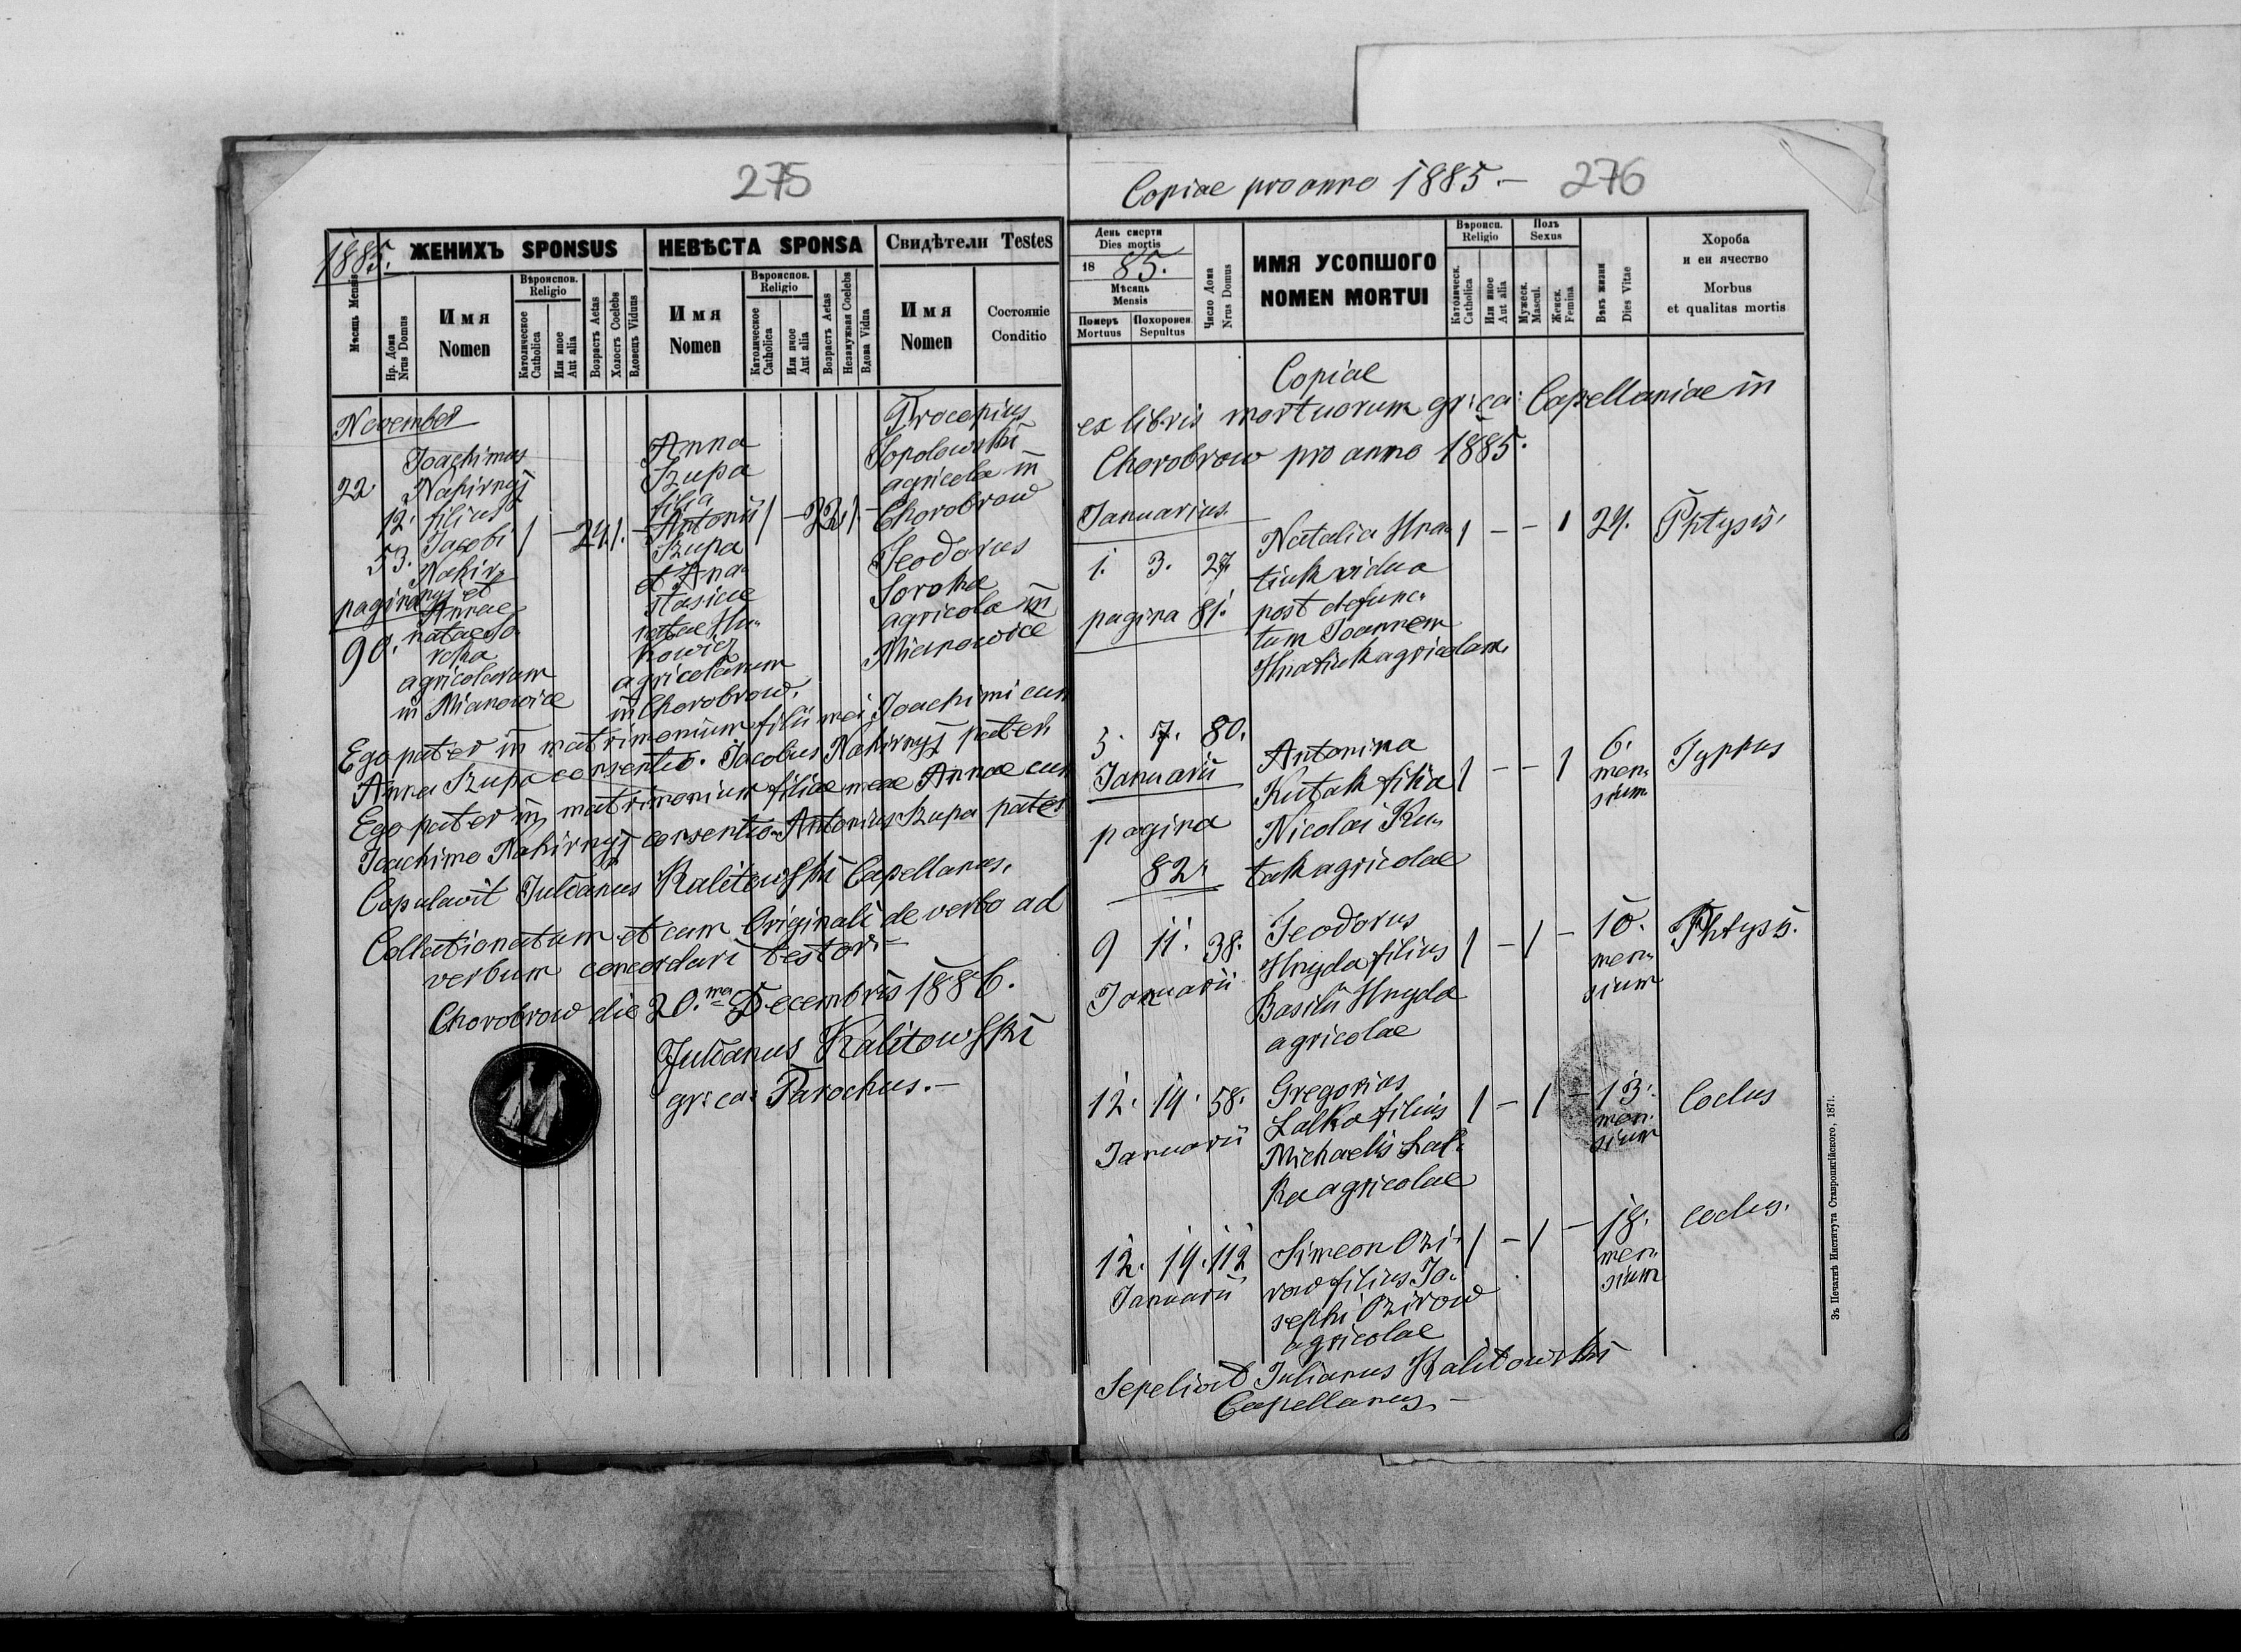 275
1885.
ЖЕНИХЪ SPONSUS
НЕВѢСТА SPONSA
Свидѣтели Testes
Мѣсяць Mensis
Нр. Дома Nrus Domus
Имя Nomen
Вѣроиспов. Religio
Католическое Catholica
Или иное Aut alia
Возрастъ Aetas
Холостъ Coelebs
Вдовецъ Viduus
Имя Nomen
Вѣроиспов. Religio
Католическое Catholica
Или иное Aut alia
Возрастъ Aetas
Незамужная Coelebs
Вдова Vidua
Имя Nomen
Состояніе Conditio
November
22.
12.
53.
pagina
90.
Joachimus
Nahirnyj
filius
Jacobi
Nahir-
nyj et
Annae
natae So-
roka
agricolarum
in Mianowice
1 - 24 1. -
Anna
Szupa
filia
Antonii
Szupa
et Ana-
stasiae
natae
agricolarum
in Chorobrow.
1 - 22. 1. -
Procopius
Sopolowski
agricola in
Chorobrow
Teodorus
Soroka
agricola in
Mianowice
Ego pater in matrimonium filii mei Joachimi cum
Anna Szupa consentio. Jacobus Nahirnyj pater.
Ego pater in matrimonium filiae meae Annae cum
Joachimo Nahirnyj consentio Antonius Szupa pater
Copulavit Julianus Kalitowski Capellanus.
Collationatum et cum Originali de verbo ad
verbum concordari testor. -
Chorobrow die 20.ma Decembris 1886.
Julianus Kalitowski
gr: ca: Parochus. -
Copiae pro anno 1885. - 276
День смерти
Dies mortis
18 85.
Мѣсяць
Mensis
Померъ Mortuus
Похоронен. Sepultus
Число Дома Nrus Domus
ИМЯ УСОПШОГО
NOMEN MORTUI
Вѣроисп. Religio
Католическ. Catholica
Или иное Aut alia
Полъ Sexus
Мужеск. Mascul.
Женск. Femina
Вѣкъ жизни Dies Vitae
Хороба
и еи ячество
Morbus
et qualitas mortis
Copiae
ex libris mortuorum gr: ca: Capellaniae in
Chorobrow pro anno 1885.
Januarius.
1. 3. 27.
pagina 81.
Natalia Hna-
tiuk vidua
post defunc-
tum Joannem
Hnatiuk agricolam.
1 - - 1 24. Phtysis.
5. 7. 80.
Januarii
pagina
82.
Antonina
Kutak filia
Nicolai Ku-
tak agricolae
1 - - 1
6.
men-
sium
Typhus
9 11. 38.
Januarii
Teodorus
Hnyda filius
Basilii Hnyda
agricolae
1 - 1 -
10.
men-
sium
Phtysis.
12. 14. 58.
Januarii
Gregorius
Lalka filius
Michaelis Lal-
ka agricolae
1 - 1 -
13.
men-
sium
Coclus
12. 14. 112
Januarii
Simeon Ozi-
row filius Jo-
sephi Ozirow
agricolae
1 - 1 -
18.
men-
sium
coclus.
Sepelivit Julianus Kalitowski
Capellanus. -
Зъ Печатнѣ Института Ставропигійского, 1871.